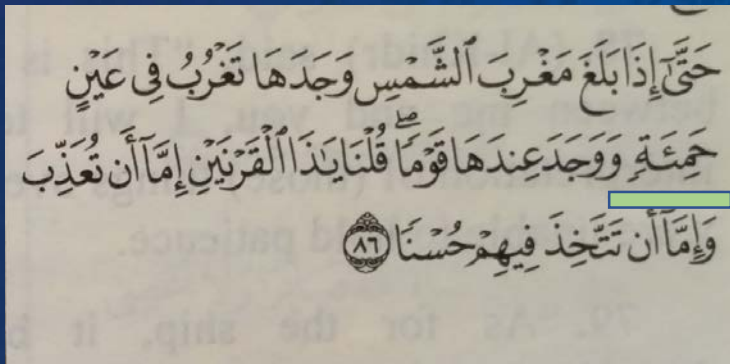 حَتَّىٰٓ إِذَا بَلَغَ مَغْرِبَ ٱلشَّمْسِ وَجَدَهَا تَغْرُبُ فِى عَيْنٍ
حَمِئَةٍ وَوَجَدَ عِندَهَا قَوْمًا ۖ قُلْنَا يَٰذَا ٱلْقَرْنَيْنِ إِمَّآ أَن تُعَذِّبَ
وَإِمَّآ أَن تَتَّخِذَ فِيهِمْ حُسْنًا ٨٦